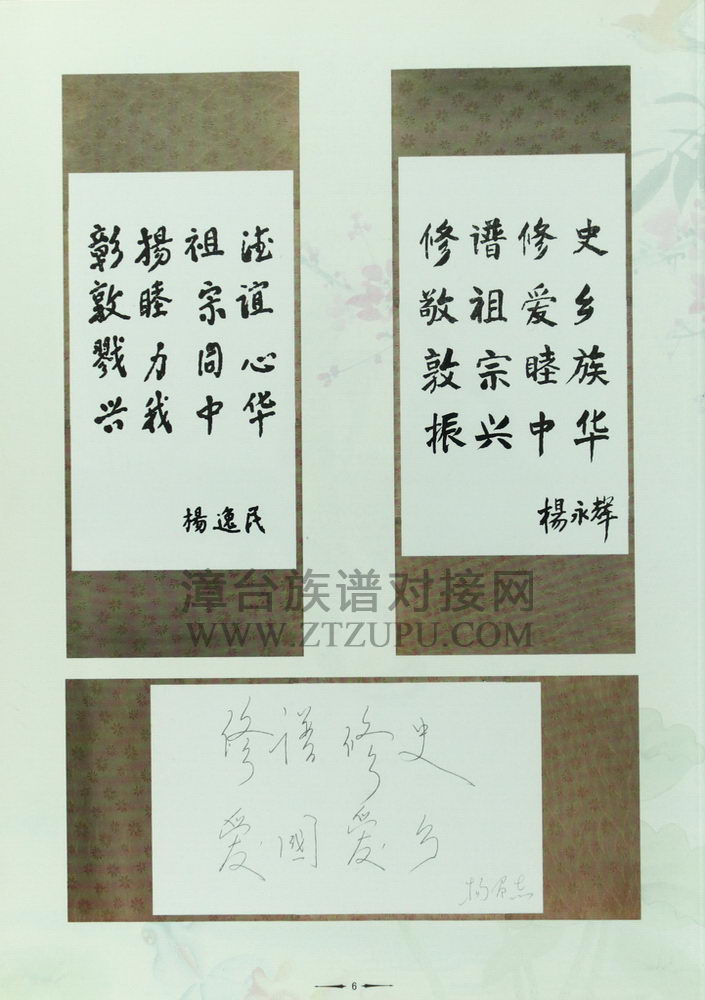 彰揚祖德
敦睦宗谊
戮力同心
兴我中华
楊逸民
修谱修史
敬祖爱乡
敦宗睦族
振兴中华
楊永輝
漳台族谱对接网
WWW.ZTZUPU.COM
修谱修史
爱國爱乡
6